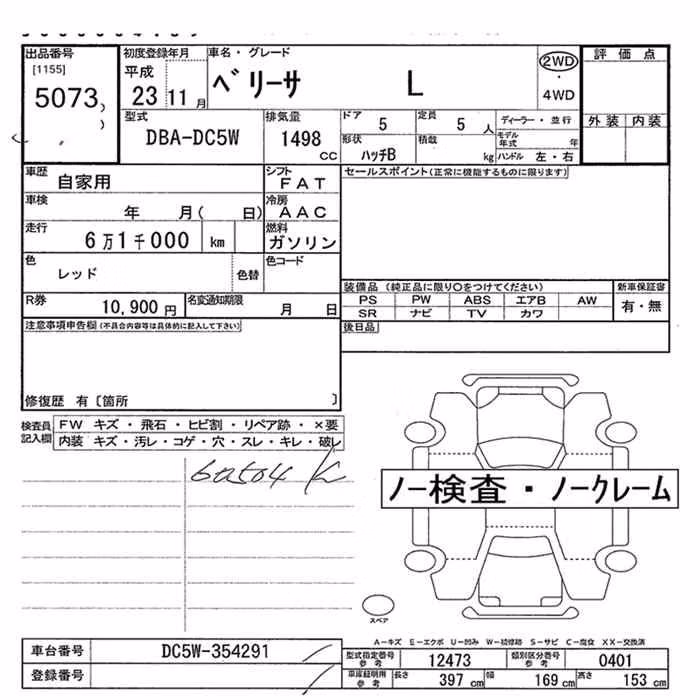 出品番号 初度登録年月 車名・グレード 評価点
[1155] 平成 2WD
5073 23 11月 ベリーサ L ・
4WD
型式 排気量 ドア 5 定員 5人 ディーラー・並行 外装 内装
DBA-DC5W 1498 cc モデル年式 年
形状 ハッチB 積載 kg ハンドル 左・右
車歴 自家用 シフト FAT セールスポイント(正常に機能するものに限ります)
車検 年 月( 日) 冷房 AAC
走行 6万1千000 km 燃料 ガソリン
色 レッド 色替 色コード
装備品(純正品に限り○をつけてください) 新車保証書
R券 10,900円 名変通知期限 月 日 PS PW ABS エアB AW 有・無
SR ナビ TV カワ
注意事項申告欄(不具合内容等は具体的に記入して下さい) 後日品
修復歴 有〔箇所 〕
検査員記入欄 FW キズ・飛石・ヒビ割・リペア跡・×要
内装 キズ・汚レ・コゲ・穴・スレ・キレ・破レ
ノー検査・ノークレーム
スペア
A-キズ E-エクボ U-凹み W-補修跡 S-サビ C-腐食 XX-交換済
車台番号 DC5W-354291 型式指定番号参考 12473 類別区分番号参考 0401
登録番号 車庫証明用参考 長さ 397cm 幅 169cm 高さ 153cm